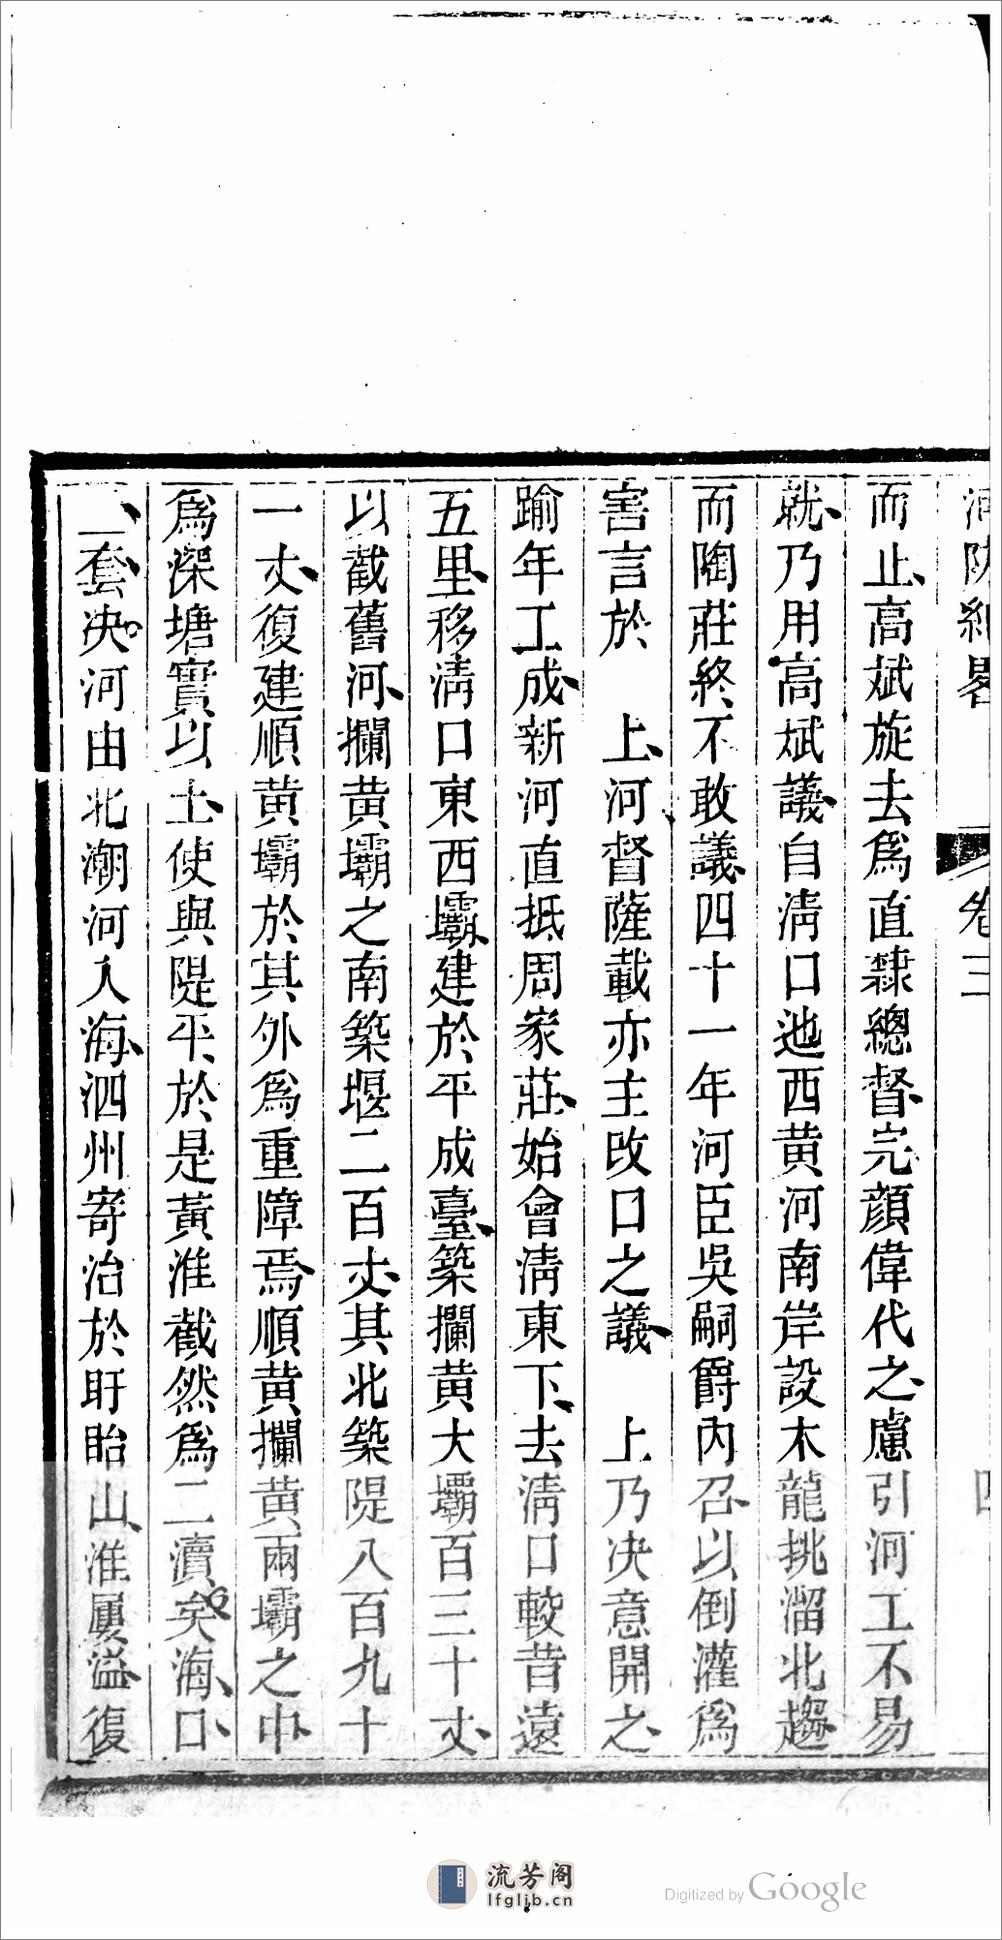 卷三
而止高斌旋去爲直隷總督完顏偉代之慮引河工不易
就乃用高斌議自淸口迆西黄河南岸設木龍挑溜北趨
而陶莊終不敢議四十一年河臣吳嗣爵内召以倒灌爲
害言於 上河督薩載亦主改口之議 上乃决意開之
踰年工成新河直抵周家莊始會淸東下去淸口較昔遠
五里移淸口東西壩建於平成臺築攔黄大壩百三十丈
以截舊河攔黄壩之南築堰二百丈其北築隄八百九十
一丈復建順黄壩於其外爲重障焉順黄攔黄兩壩之中
爲深塘實以土使與隄平於是黃淮截然爲二瀆矣海口
二套决河由北潮河入海泗州寄治於盱眙山淮屢溢復
流芳阁
lfglib.cn
Digitized by Google